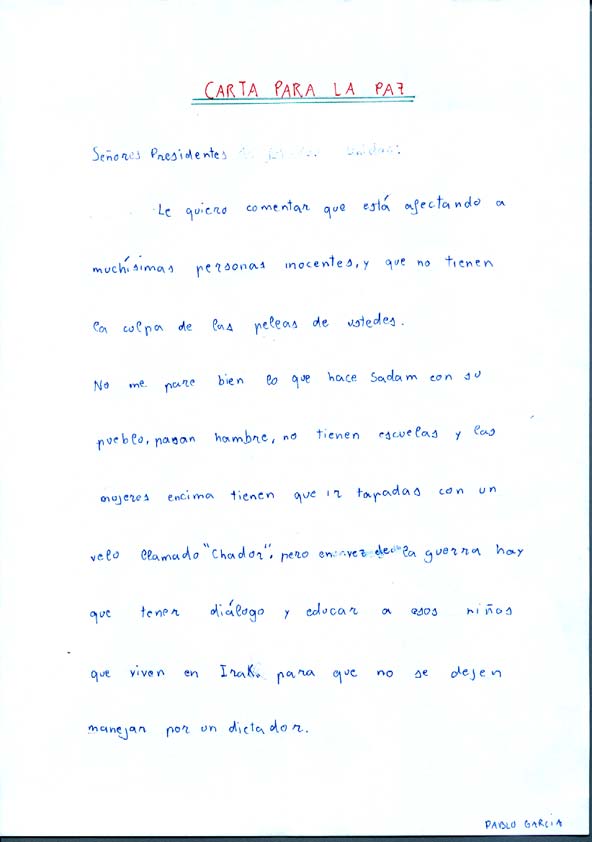 CARTA PARA LA PAZ
Señores Presidentes
Le quiero comentar que está afectando a
muchísimas personas inocentes, y que no tienen
la culpa de las peleas de ustedes.
No me pare bien lo que hace Sadam con su
pueblo, pasan hambre, no tienen escuelas y las
mujeres encima tienen que ir tapadas con un
velo llamado "Chador", pero en vez de la guerra hay
que tener diálogo y educar a esos niños
que viven en Irak. para que no se dejen
manejar por un dictador.
PABLO GARCIA